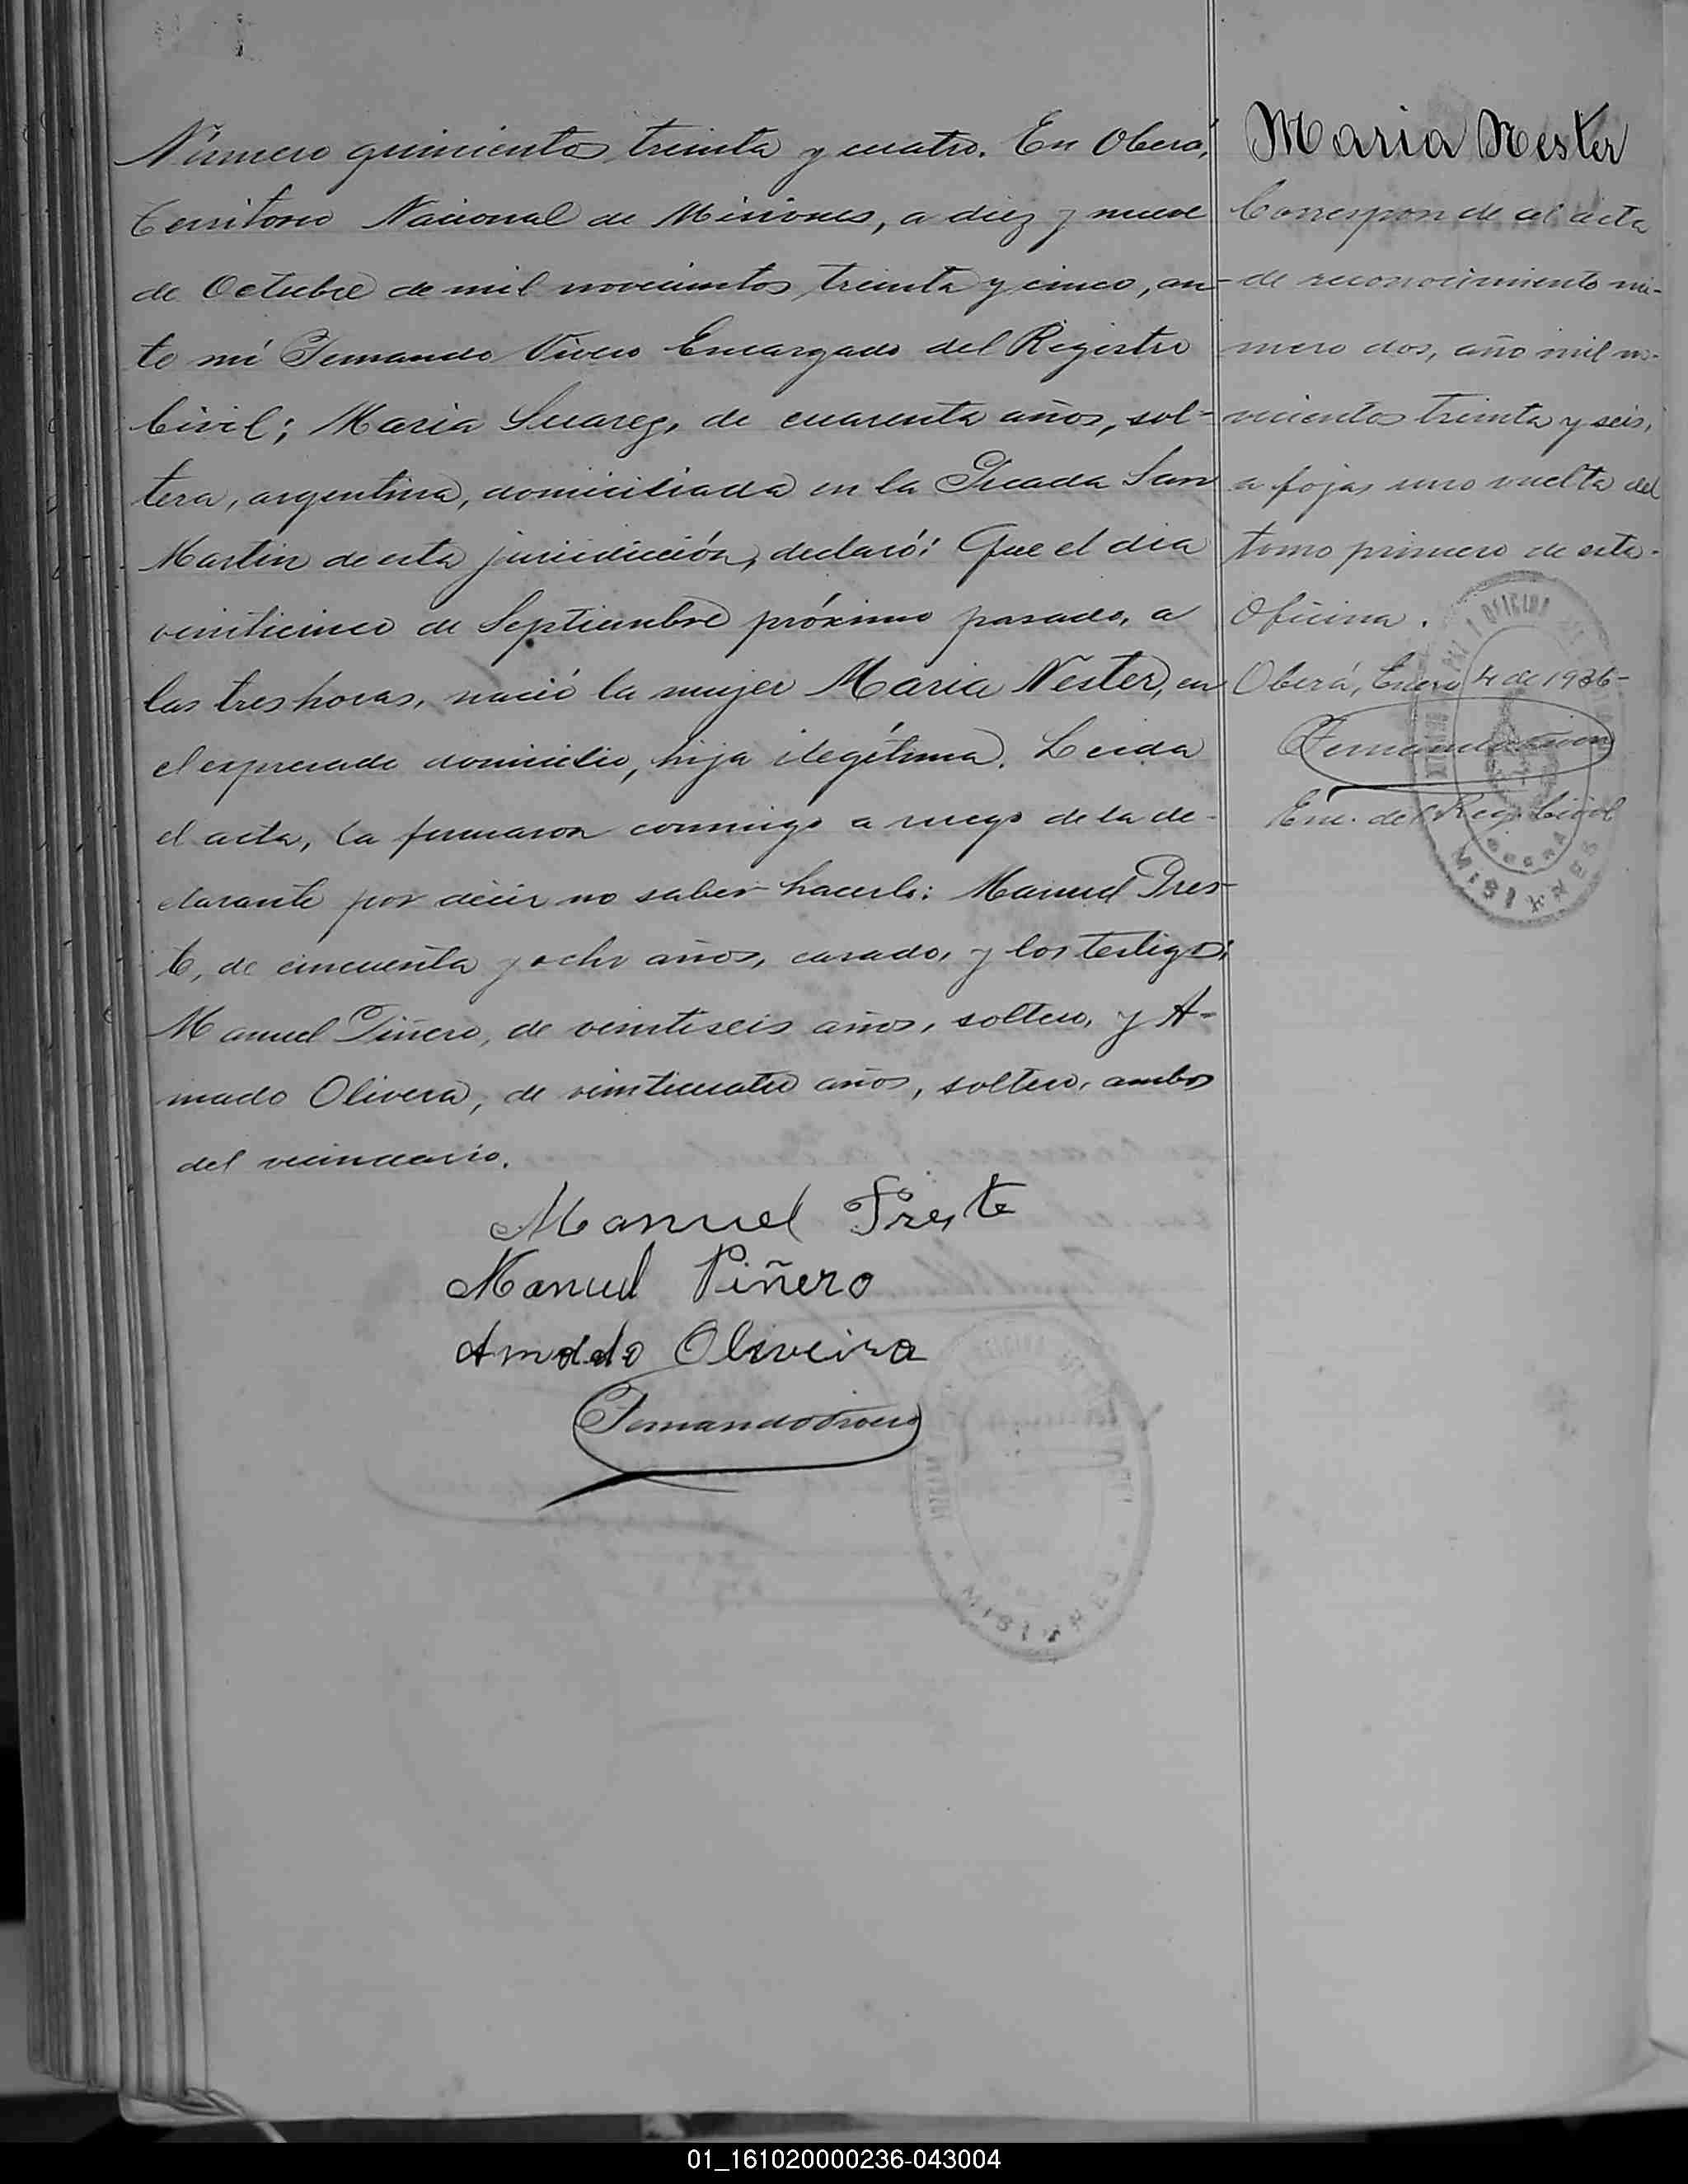 Número quinientos treinta y cuatro. En Oberá,
Territorio Nacional de Misiones, a diez y nueve
de Octubre de mil novecientos treinta y cinco, an-
te mí Fernando Vivero Encargado del Registro
Civil; Maria Suarez, de cuarenta años, sol-
tera, argentina, domiciliada en la Picada San
Martin de esta jurisdicción, declaró: Que el dia
veinticinco de Septiembre próximo pasado, a
las tres horas, nació la mujer Maria Nester, en
el expresado domicilio, hija ilegítima. Leida
el acta, la firmaron conmigo a ruego de la de-
clarante por decir no saber hacerlo: Manuel Pres-
te, de cincuenta y ocho años, casado, y los testigos,
Manuel Piñero, de veintiseis años, soltero, y A-
mado Olivera, de veinticuatro años, soltero, ambos
del vecindario.
Manuel Preste
Manuel Piñero
Amado Oliveira
Fernando Vivero
MISIONES
Maria Nester
Corresponde al acta
de reconocimiento nú-
mero dos, año mil no-
vecientos treinta y seis,
a fojas uno vuelta del
tomo primero de esta
Oficina.
Oberá, Enero 4 de 1936-
Fernando Vivero
Enc. del Reg. Civil
OFICINA
MISIONES
01_161020000236-043004